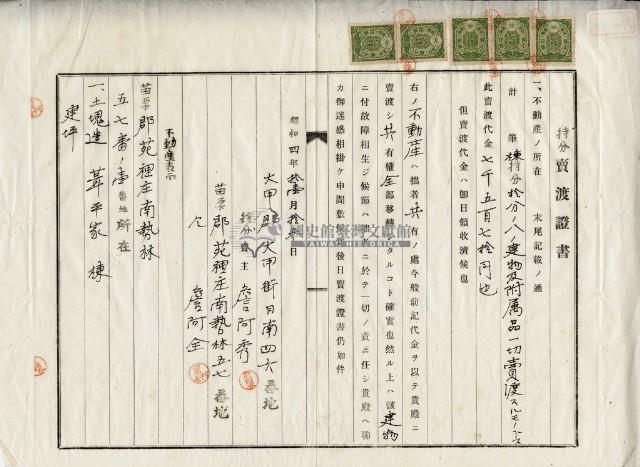 持分賣渡證書
一、不動產ノ所在 末尾記載ノ通
計 筆棟 持分拾分ノ八 建物及附属品一切賣渡スルモノトス
此賣渡代金七千五百七拾円也
但賣渡代金ハ卽日領收濟候也
右ノ不動產ハ拙者共有ノ處今般前記代金ヲ以テ貴殿ニ
賣渡シ共有權全部移轉タルコト確實也然ル上ハ該建物
ニ付故障相生ジ候節ハ ニ於テ一切ノ責ニ任シ貴殿ヘ聊
カ御迷惑相掛ケ申間敷 後日賣渡證書仍如件
昭和四年拾壹月拾 日
大甲郡大甲街日南四六番地
持分賣主 詹阿秀
苗栗郡苑裡庄南勢林五七番地
仝 詹阿金
不動產表示
苗栗郡苑裡庄南勢林
五七番ノ壹番地所在
一、土塊造葺平家 棟
建坪
國史館臺灣文獻館
TAIWAN HISTORICA